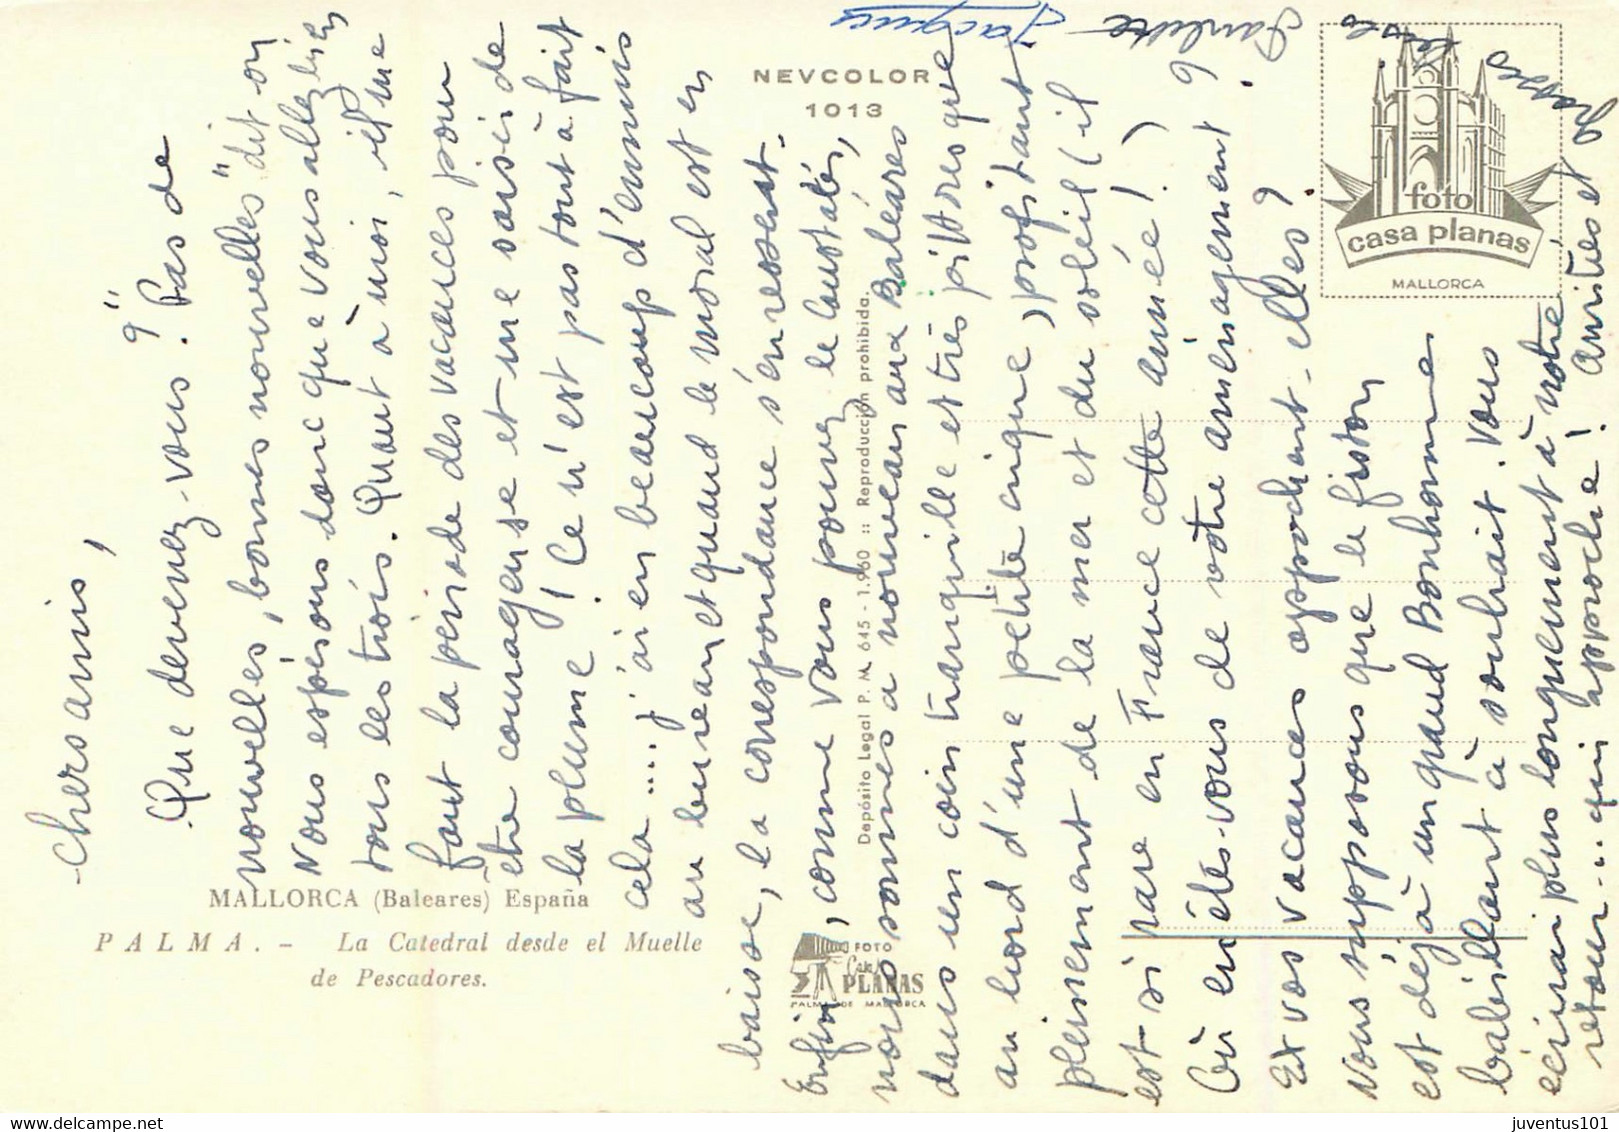 Chers amis,
Que devenez-vous ? Pas de
nouvelles, bonnes nouvelles" dit-on
Nous espérons donc que vous allez bien
tous les trois. Quant à moi, il me
faut la période des vacances pour
etre courageuse et me saisir de
la plume ! Ce n'est pas tout à fait
cela .... j'ai en beaucoup d'ennuis
au bureau et quand le moral est en
baisse, la correspondance s'en ressent.
Enfin, comme vous pouvez le constater,
nous sommes à nouveau aux Baléares
dans un coin tranquille et très pittoresque
au bord d'une petite crique, profitant
pleinement de la mer et du soleil (il
est si rare en France cette année !)
Où en êtes-vous de votre aménagement ?
Et vos vacances approchent-elles ?
Nous supposons que le fiston
est déjà un grand Bonhomme
babillant à souhait. Vous
écrirai plus longuement à notre
retour... qui approche ! Amitiés et
Jacques
NEVCOLOR
1013
foto
casa planas
MALLORCA
Depósito Legal P. M. 645 - 1.960 :: Reproducción prohibida.
MALLORCA (Baleares) España
PALMA. - La Catedral desde el Muelle
de Pescadores.
FOTO
PLANAS
PALMA DE MALLORCA
juventus101